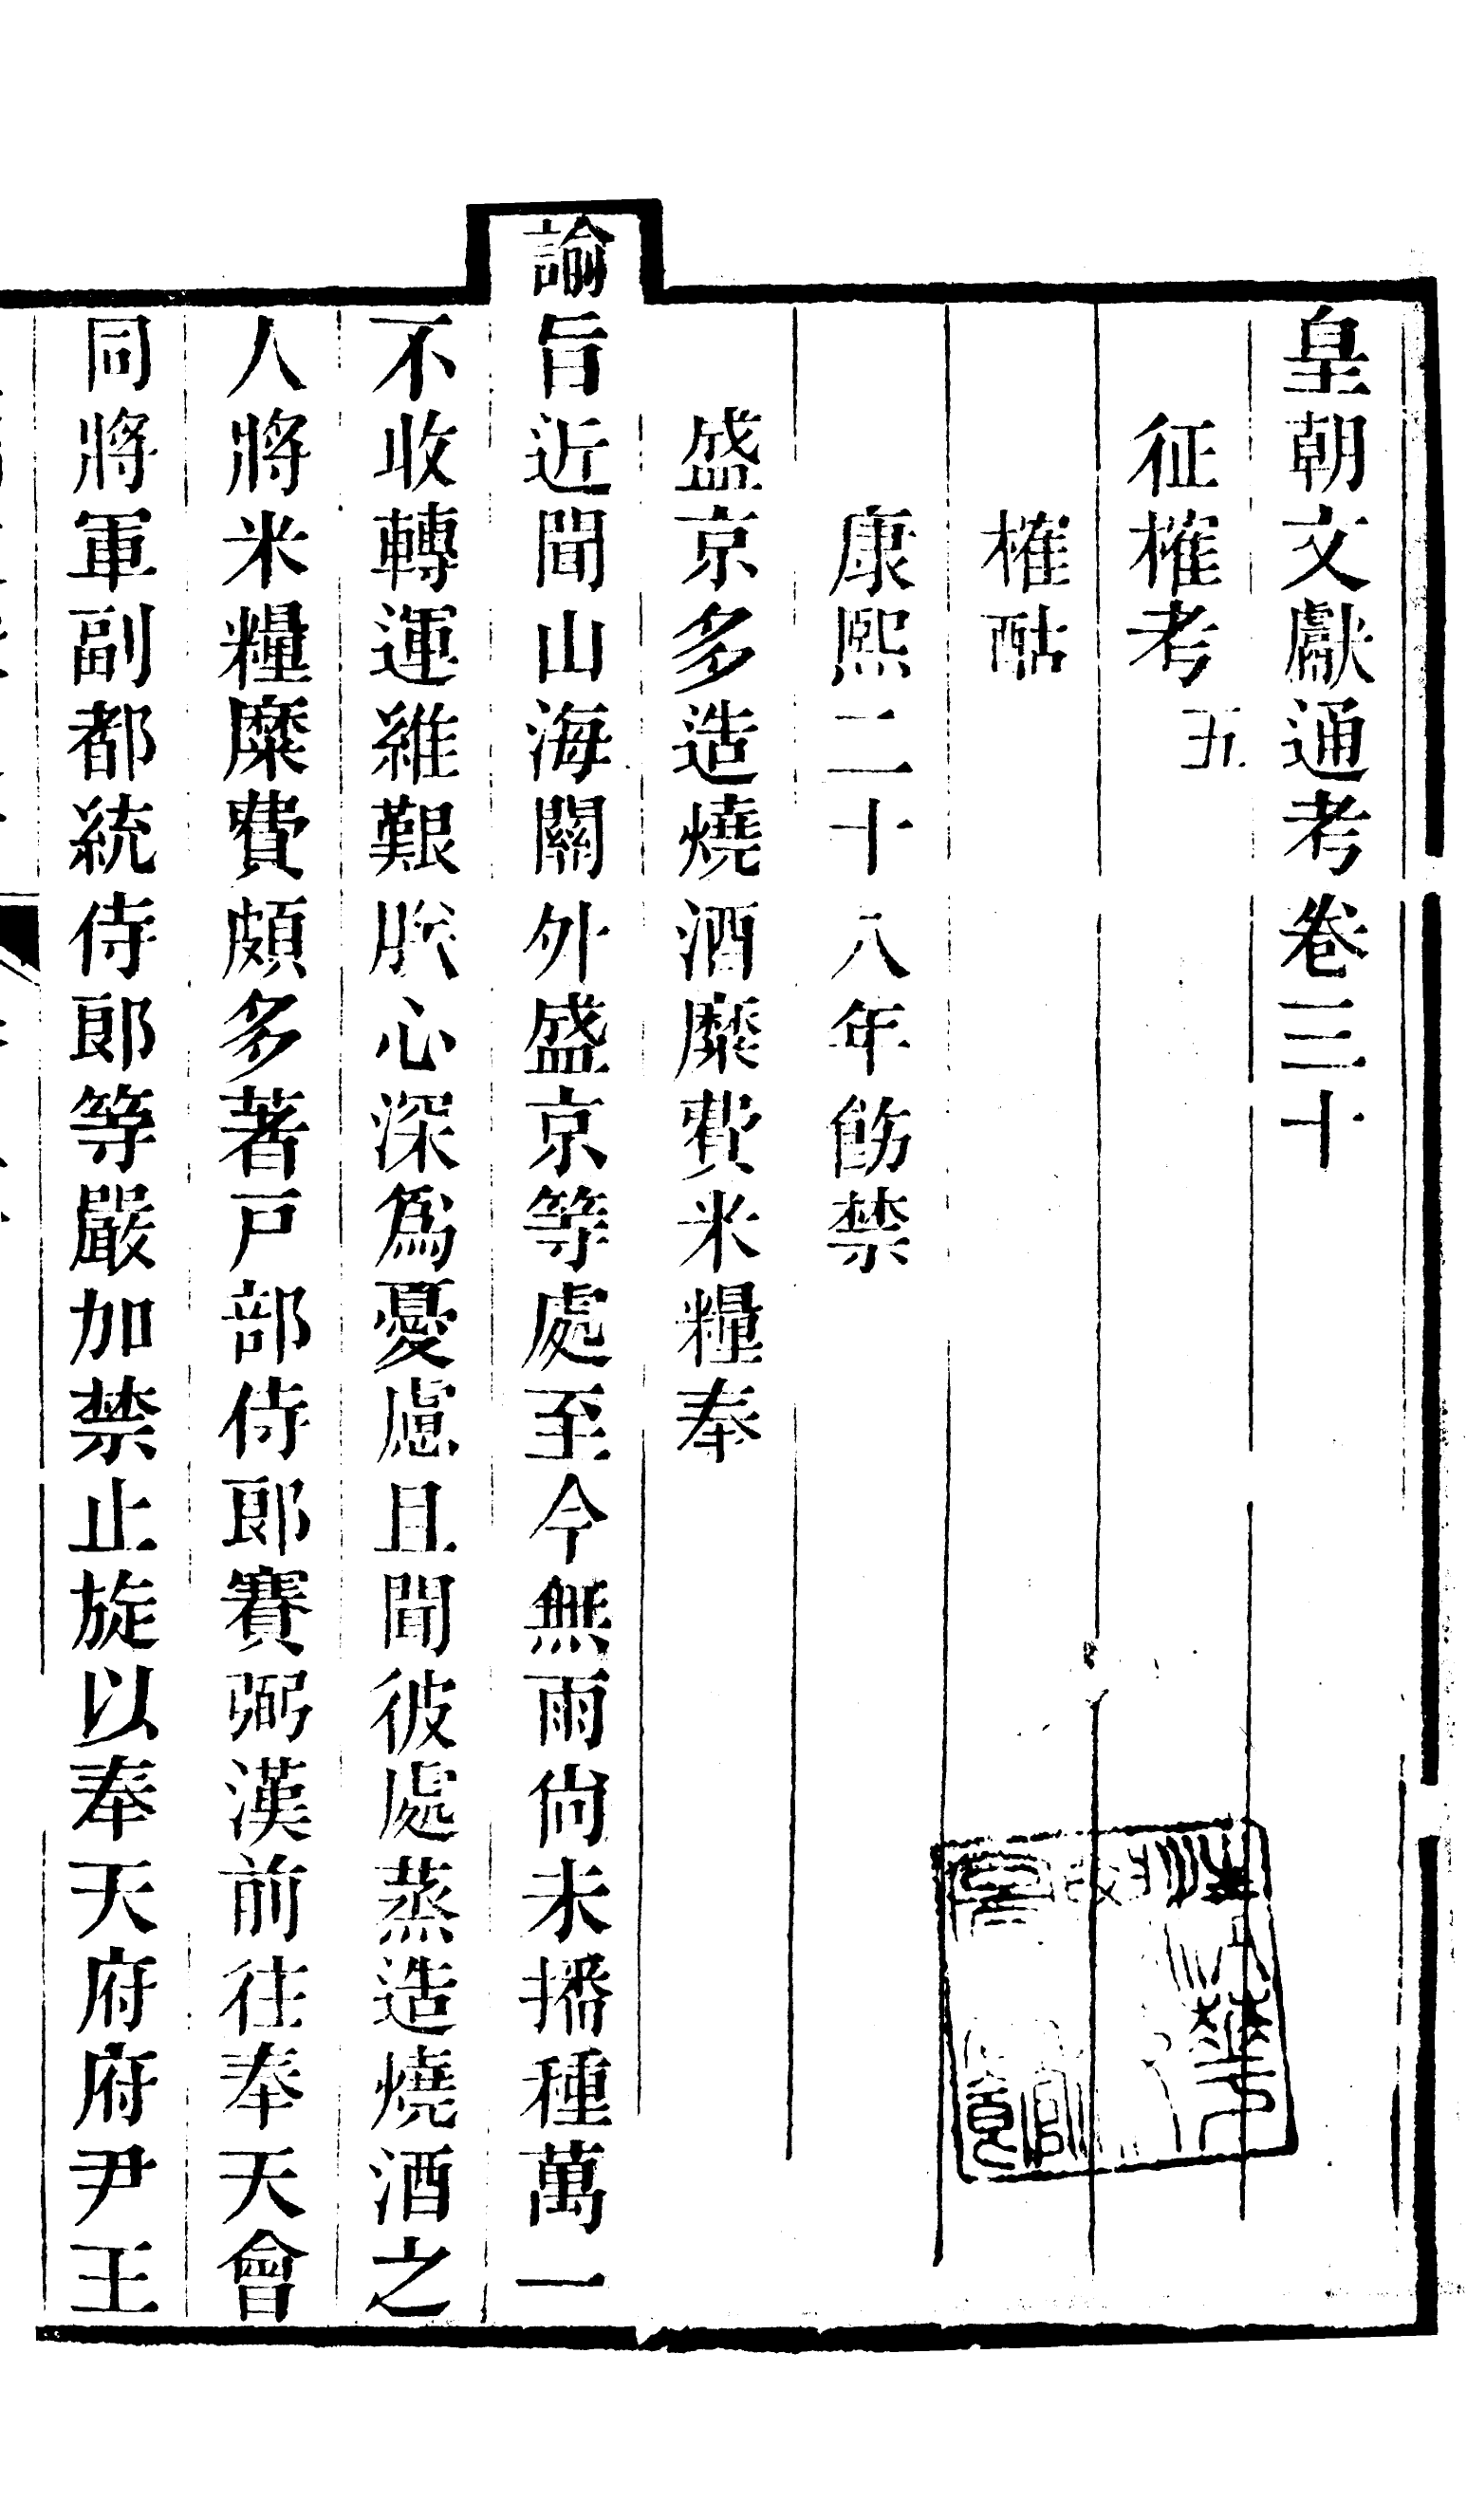 皇朝文獻通考卷三十
征榷考五
榷酤
康熙二十八年飭禁
盛京多造燒酒糜費米糧奉
諭旨近聞山海關外盛京等處至今無雨尙未播種萬一
不收轉運維艱朕心深爲憂慮且聞彼處蒸造燒酒之
人將米糧糜費頗多著戸部侍郎賽弼漢前往奉天會
同將軍副都統侍郎等嚴加禁止旋以奉天府府尹王